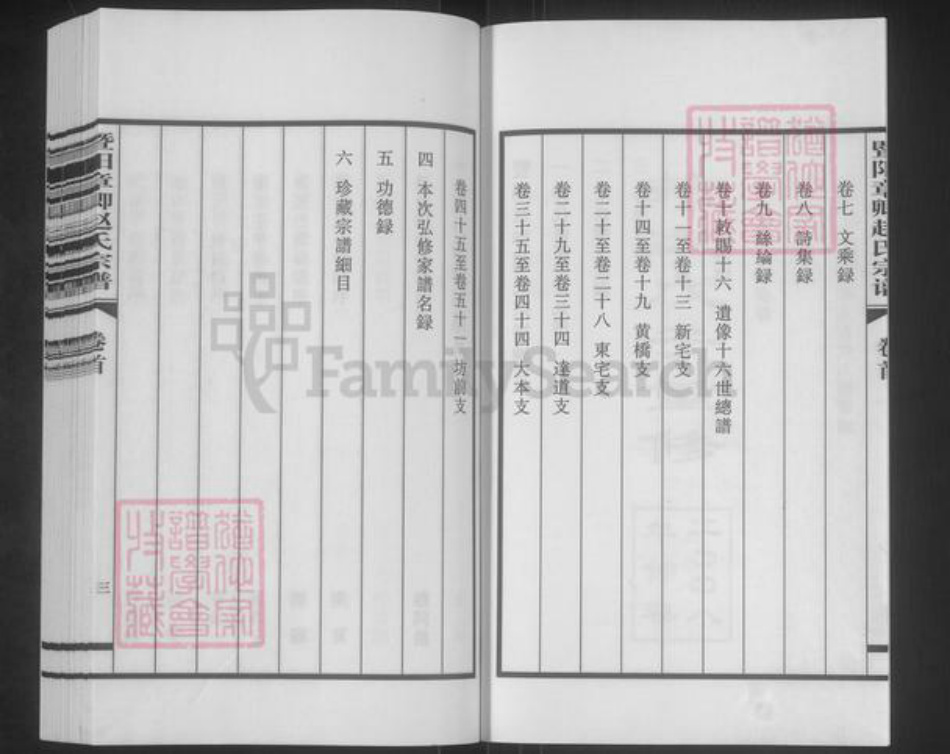 暨陽章卿趙氏宗譜 卷首
卷七 文乘録
卷八 詩集録
卷九 絲綸録
卷十敕賜十六 遺像十六世總譜
卷十一至卷十三 新宅支
卷十四至卷十九 黄橋支
卷二十至卷二十八 東宅支
卷二十九至卷三十四 達道支
卷三十五至卷四十四 大本支
卷四十五至卷五十一 坊前支
四 本次弘修家譜名録
五 功德録
六 珍藏宗譜細目
暨阳章卿赵氏宗谱 卷首
三
FamilySearch